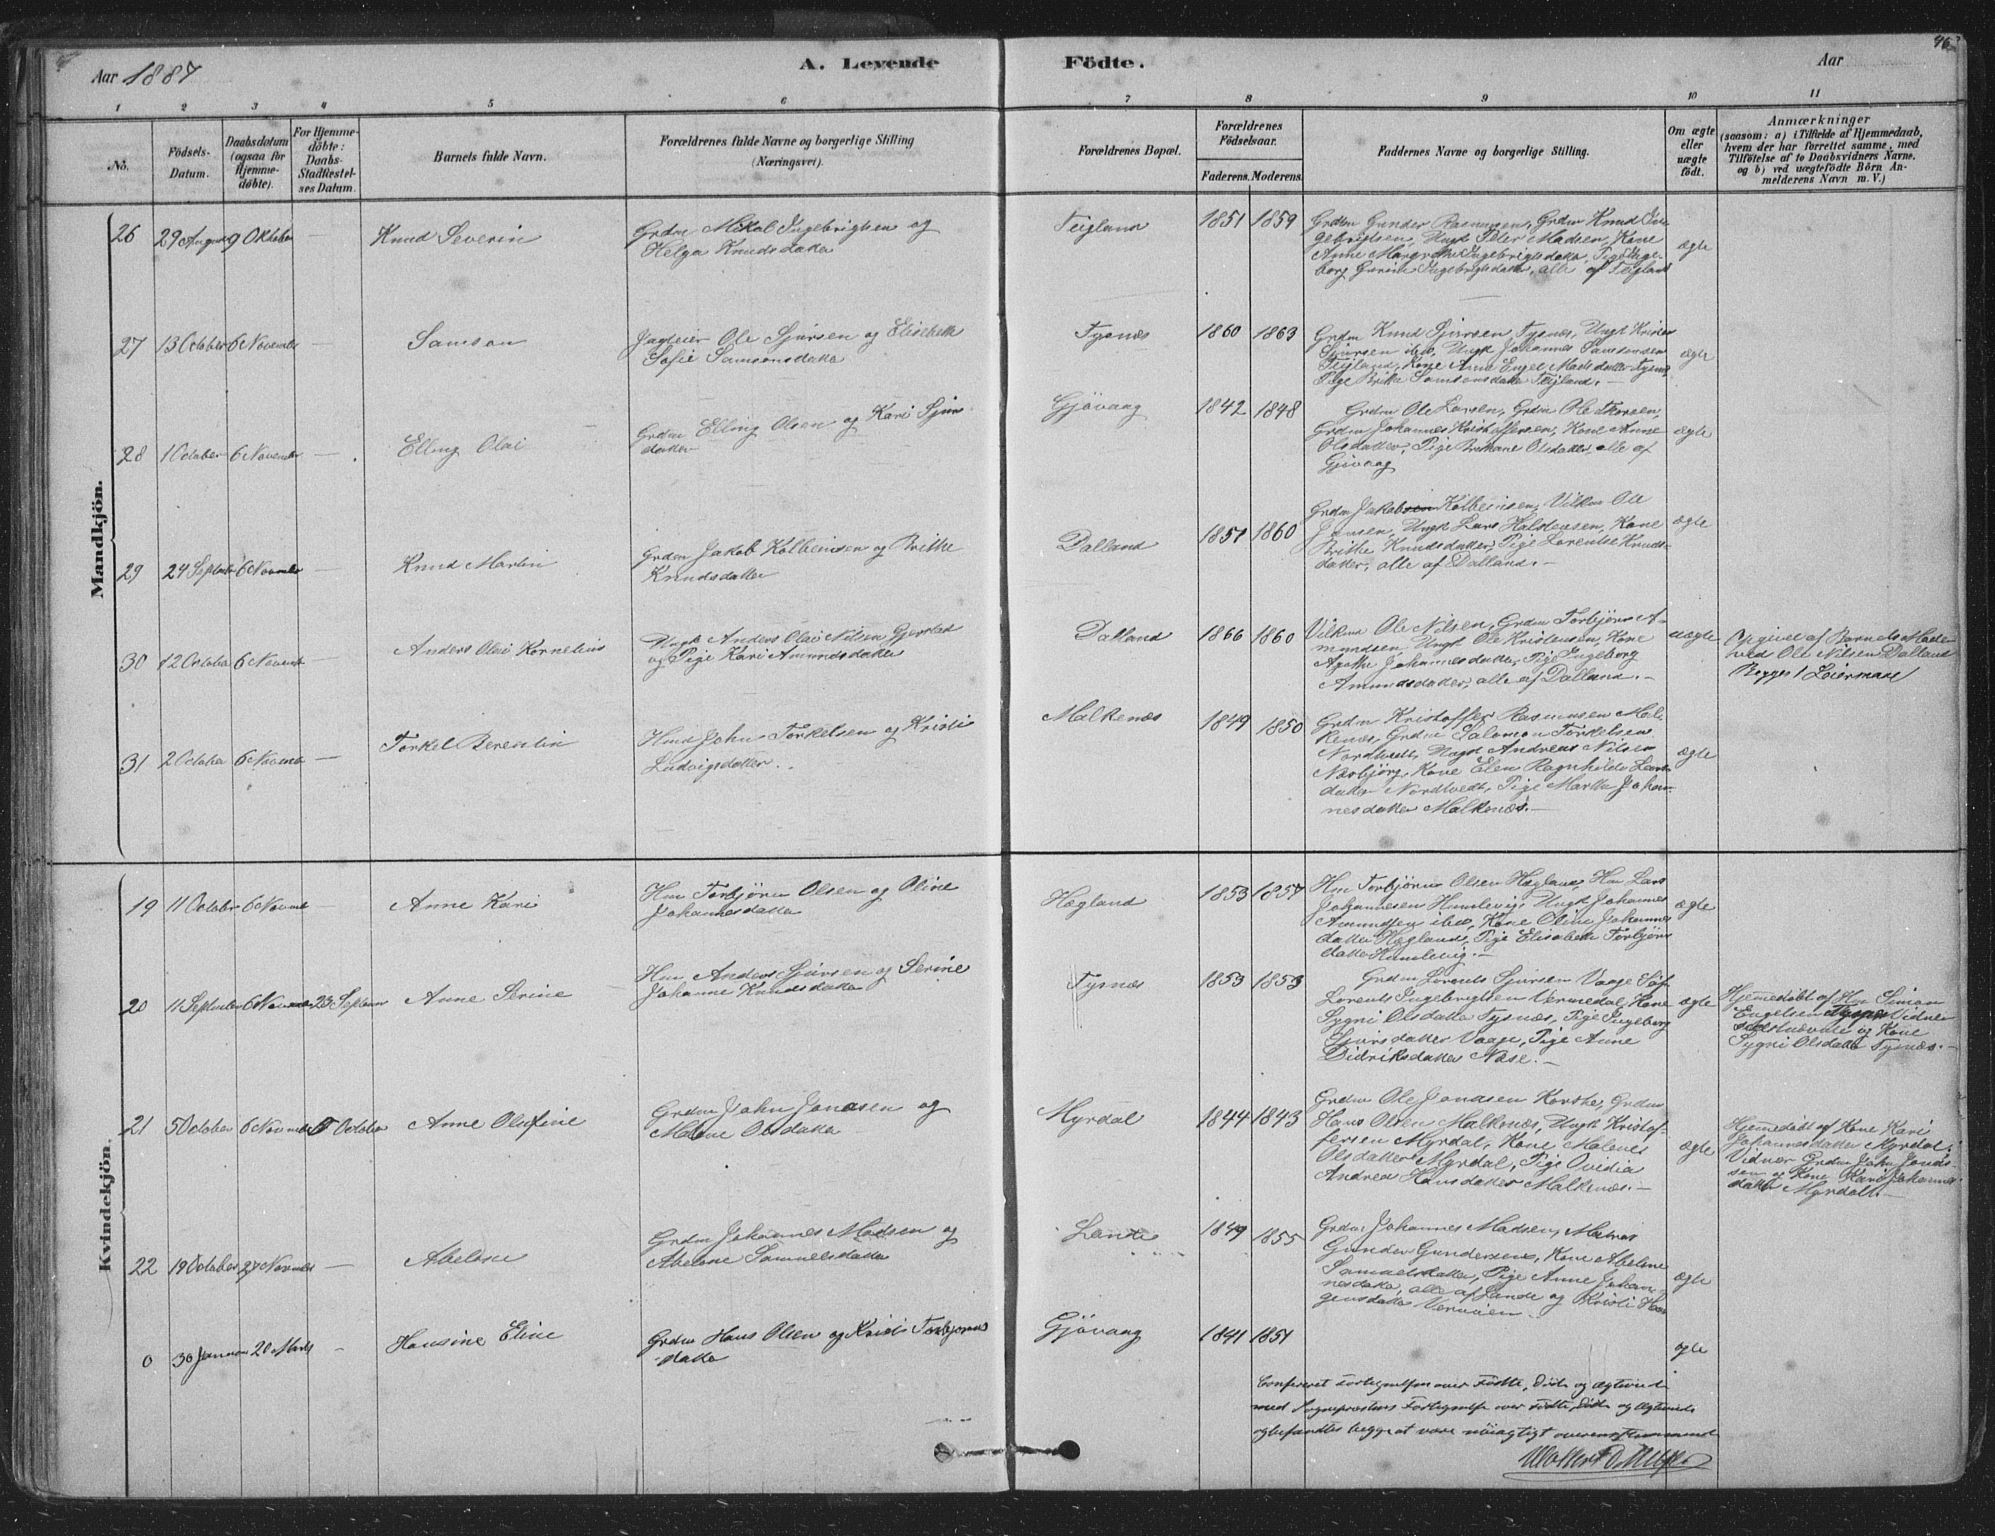 Aar 1887
A. Levende
Födte.
Aar
46
1 2 3 4 5 6 7 8 9 10 11
No.
Födsels-
Datum.
Daabsdatum
(ogsaa för
Hjemme-
döbte).
For Hjemme-
döbte:
Daabs-
Stadfæstel-
ses Datum.
Barnets fulde Navn.
Forældrenes fulde Navne og borgerlige Stilling
(Næringsvei).
Forældrenes Bopæl.
Forældrenes
Födselsaar.
Faderens. Moderens.
Faddernes Navne og borgerlige Stilling.
Om ægte
eller
uægte
födt.
Anmærkninger
(saasom: a) i Tilfælde af Hjemmedaab,
hvem der har forrettet samme, med
Tilföielse af to Daabsvidners Navne.
og b) ved uægtefödte Börn An-
melderens Navn m. V.)
Mandkjön.
26 29 August 9 Oktober — Knud Severin
Grdm Mikal Ingebrigtsen og
Helga Knudsdatter
Teigland
1851 1859
Grdm Gunder Rasmussen, Grdm Knud In-
gebrigtsen, Ungk Peter Madsen, Kone
Anne Margrethe Ingebrigtsdatter, Pige Inge-
borg Gurine Ingebrigtsdatter, alle af Teigland
ægte
27 13 October 6 November — Samson
Jordeier Ole Sjursen og Elisabeth
Sofie Samsonsdatter
Tysnæs
1860 1863
Grdm Knud Sjursen Tysnæs, Ungk Kristen
Sjursen ibd, Ungk Johannes Samsonsen
Teigland, Kone Anna Engel Madsdatter Tysnæs
Pige Brithe Samsonsdatter Teigland. —
ægte
28 1 October 6 November — Elling Olai
Grdm Elling Olsen og Kari Sjurs-
datter
Gjövaag
1842 1848
Grdm Ole Larsen, Grdm Ole Thoresen,
Grdm Johannes Kristoffersen, Kone Anne
Olsdatter, Pige Olsdatter, alle af
Gjövaag
ægte
29 24 Septbr 6 November — Knud Martin
Grdm Jakob Kolbeinsen og Brithe
Knudsdatter
Dalland
1851 1860
Grdm Jakob Kolbeinsen, Vilkm Ole
Jansen, Ungk Lars Halstensen, Kone
Brithe Knudsdatter, Pige Lorentse Knuds-
datter, alle af Dalland. —
ægte
30 12 October 6 Novemb — Anders Olai Kornelius
Ungk Anders Olai Nilsen Gjerstad
og Pige Kari Amundsdatter
Dalland
1866 1860
Vilkm Ole Nilsen, Grdm Torbjörn A-
mundsen, Ungk Ole Kristensen, Kone
Agathe Johannesdatter, Pige Ingeborg
Amundsdatter, alle af Dalland. —
uægte
Opgivet af Barnets Moder
ved Ole Nilsen Dalland
Begges 1 Leiermaal
31 2 October 6 Novemb — Torkel Berentin
Hmd John Torkelsen og Kristi
Ludvigsdatter.
Malkenæs
1849 1850
Grdm Kristoffer Rasmusen Mal-
kenæs, Grdm Salomon Torkelsen
Nordtvedt, Ungk Andreas Nilsen
Nærbjörg, Kone Elen Ragnhilda Lars-
datter Nordtvedt, Pige Martha Johan-
nesdatter Malkenæs. —
ægte
Kvindekjön.
19 11 October 6 Novmb — Anne Kari
Hm Torbjörn Olsen og Oline
Johannesdatter
Hægland
1853 1857
Hm Torbjörn Olsen Hægland, Hm Lars
Johannesen Humlevig, Ungk Johannes
Amundsen ibd, Kone Oline Johannes
datter Hægland, Pige Elisabeth Torbjörns
datter Humlevig. —
ægte
20 11 September 6 November 23 September Anne Serine
Hm Anders Sjursen og Serine
Johanne Knudsdatter
Tysnæs
1853 1853
Grdm Lorents Sjursen Vaage
Lorents Ingebrigtsen Vermedal, Kone
Sygni Olsdatter Tysnæs, Pige Ingeborg
Sjursdatter Vaage, Pige Anne
Didriksdatter Næse. —
ægte
Hjemmedöbt af Hm Simon
Engelsen Tysnæs Vidner
og Kone
Sygni Olsdatter Tysnæs. —
21 5 October 6 November 5 October Anne Olufine
Grdm John Jonasen og
Malene Olsdatter
Myrdal
1844 1843
Grdm Ole Jonassen Korthe, Grdm
Hans Olsen Malkenæs, Ungk Kristof-
fersen Myrdal, Kone Malene
Olsdatter Myrdal, Pige Ovidia
Andrea Hansdatter Malkenæs. —
ægte
Hjemmedöbt af Kone Kari
Johannesdatter Myrdal.
Vidner Grdm John Jonas-
sen og Kone Kari Johannes-
datter Myrdal. —
22 19 October 27 Novmbr — Abelone
Grdm Johannes Madsen og
Abelone Samuelsdatter
Lande
1849 1855
Grdm Johannes Madsen, Matros
Gunder Gundersen, Kone Abelone
Samuelsdatter, Pige Anne Johan-
nesdatter, alle af Lande og Kristi
Vervigen
ægte
0 30 Januar 20 Marts — Hansine Eline
Grdm Hans Olsen og Kristi Torbjörns-
datter
Gjövaag
1841 1851
ægte
Confereret Fortegnelsen over Födte, Döde og Ægteviede
med Sogneprestens Fortegnelse over Födte, Döde og Ægteviede
og befandtes begge at være nöiagtigt overensstemmende